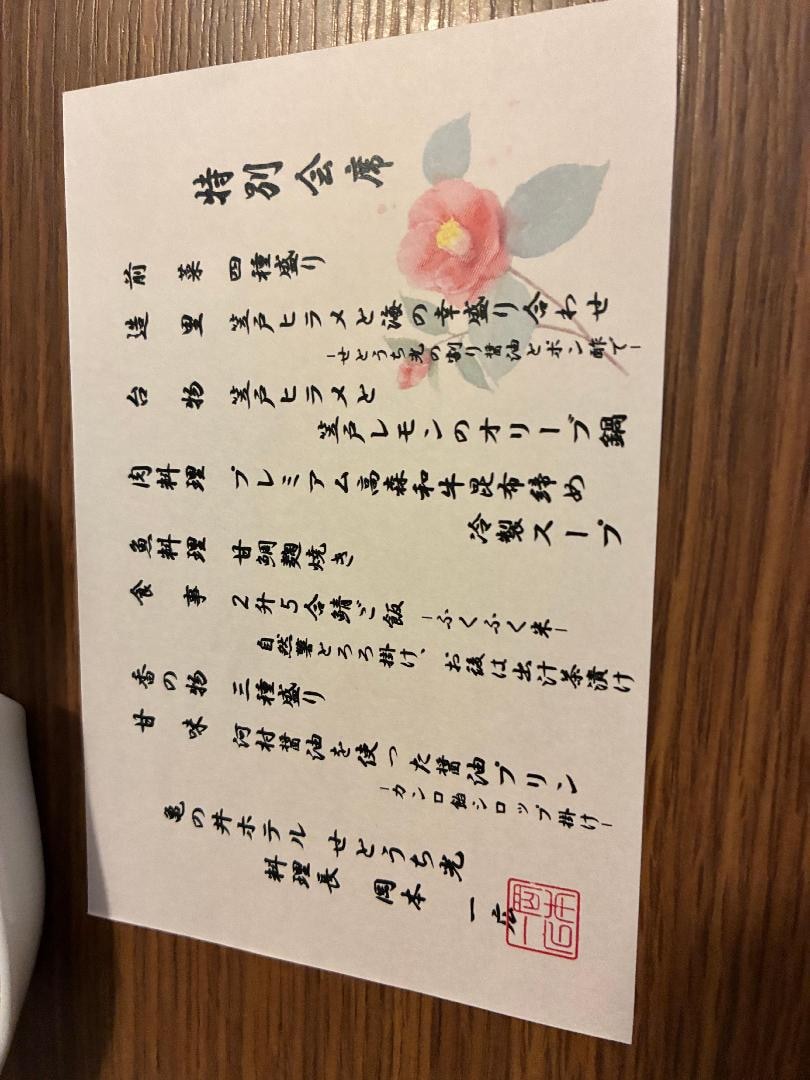 特別会席
前菜 四種盛り
造里 笠戸ヒラメと海の幸盛り合わせ
―せとうち光の割り醤油とポン酢で―
台物 笠戸ヒラメと
笠戸レモンのオリーブ鍋
肉料理 プレミアム高森和牛昆布締め
冷製スープ
魚料理 甘鯛麹焼き
食事 2升5合鯖ご飯 ―ふくふく米―
自然薯とろろ掛け、お後は出汁茶漬け
香の物 三種盛り
甘味 河村醤油を使った醤油プリン
―カンロ飴シロップ掛け―
亀の井ホテル せとうち光
料理長 岡本 一広